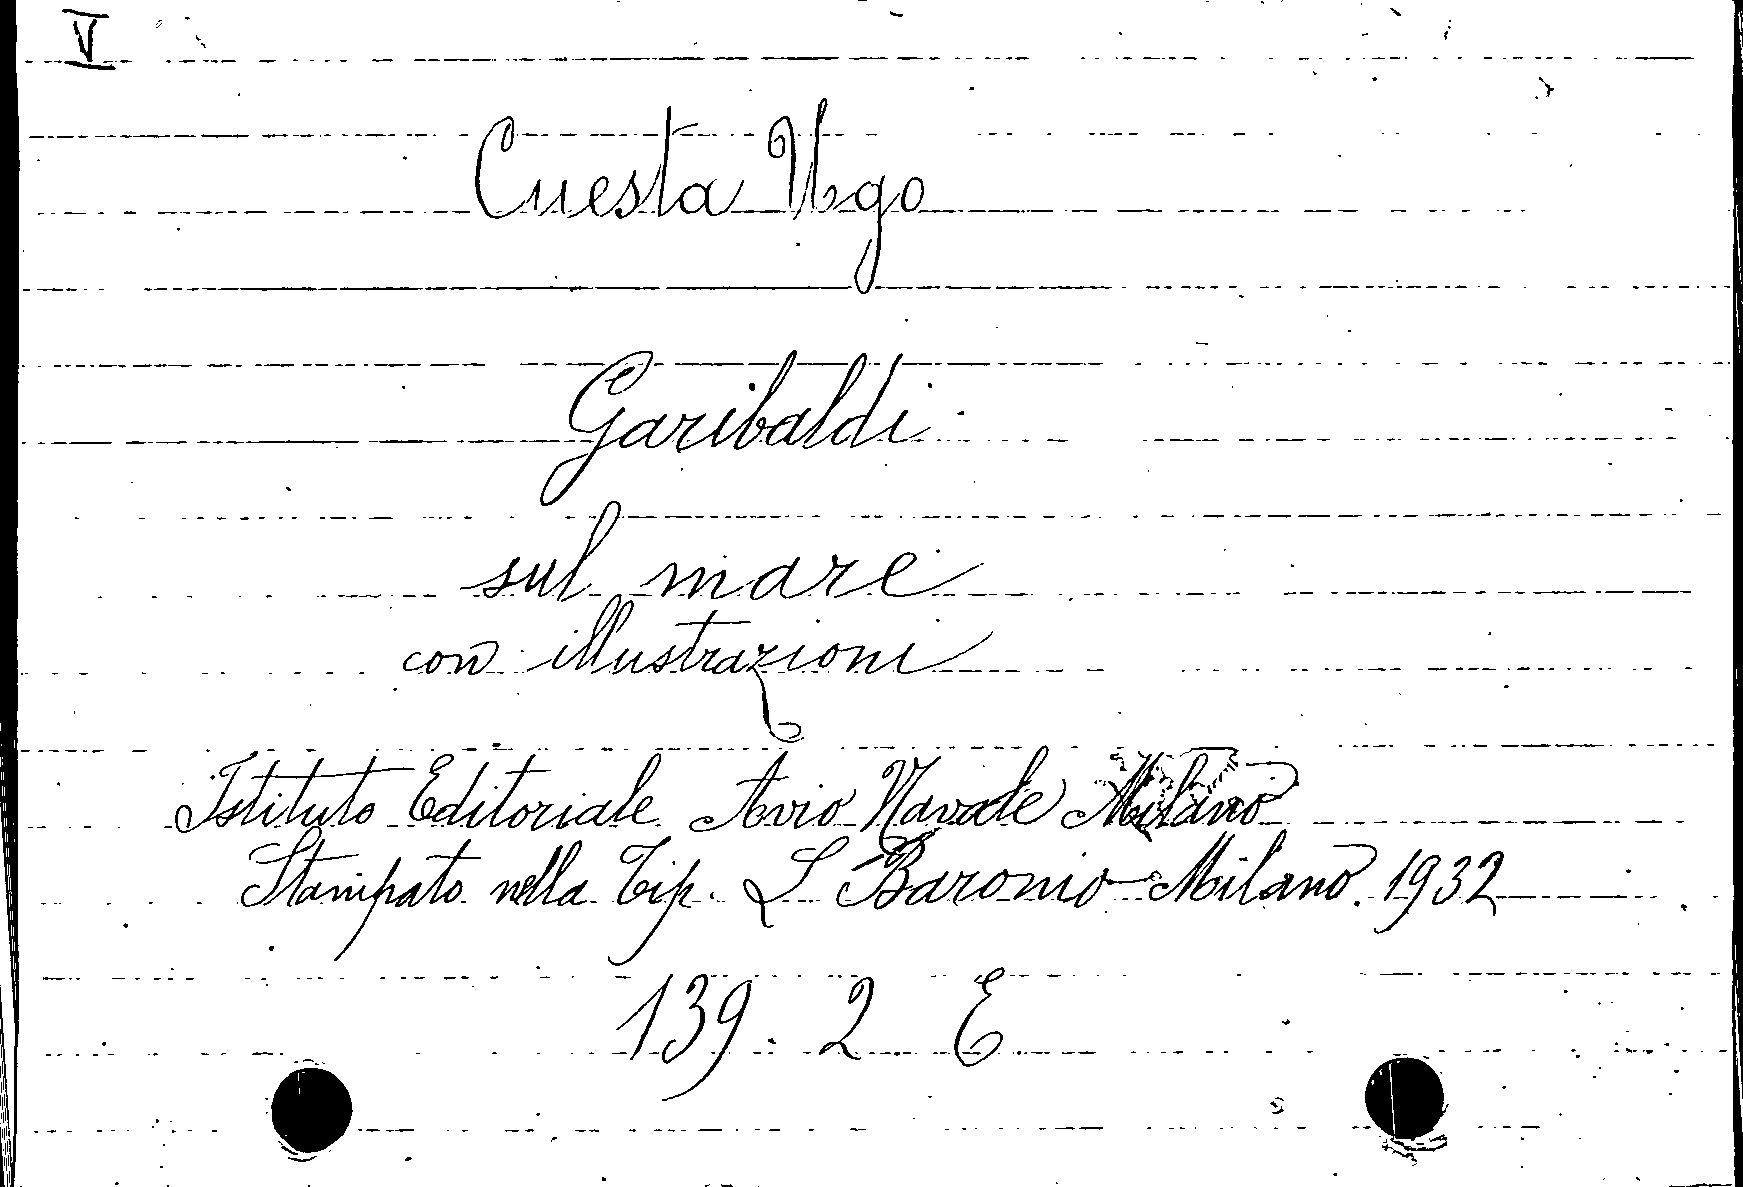 V
Cuesta Ugo
Garibaldi
sul mare
con illustrazioni
Istituto Editoriale Avio Navale Milano
Stampato nella Tip. L Baronio Milano. 1932
139. 2 E